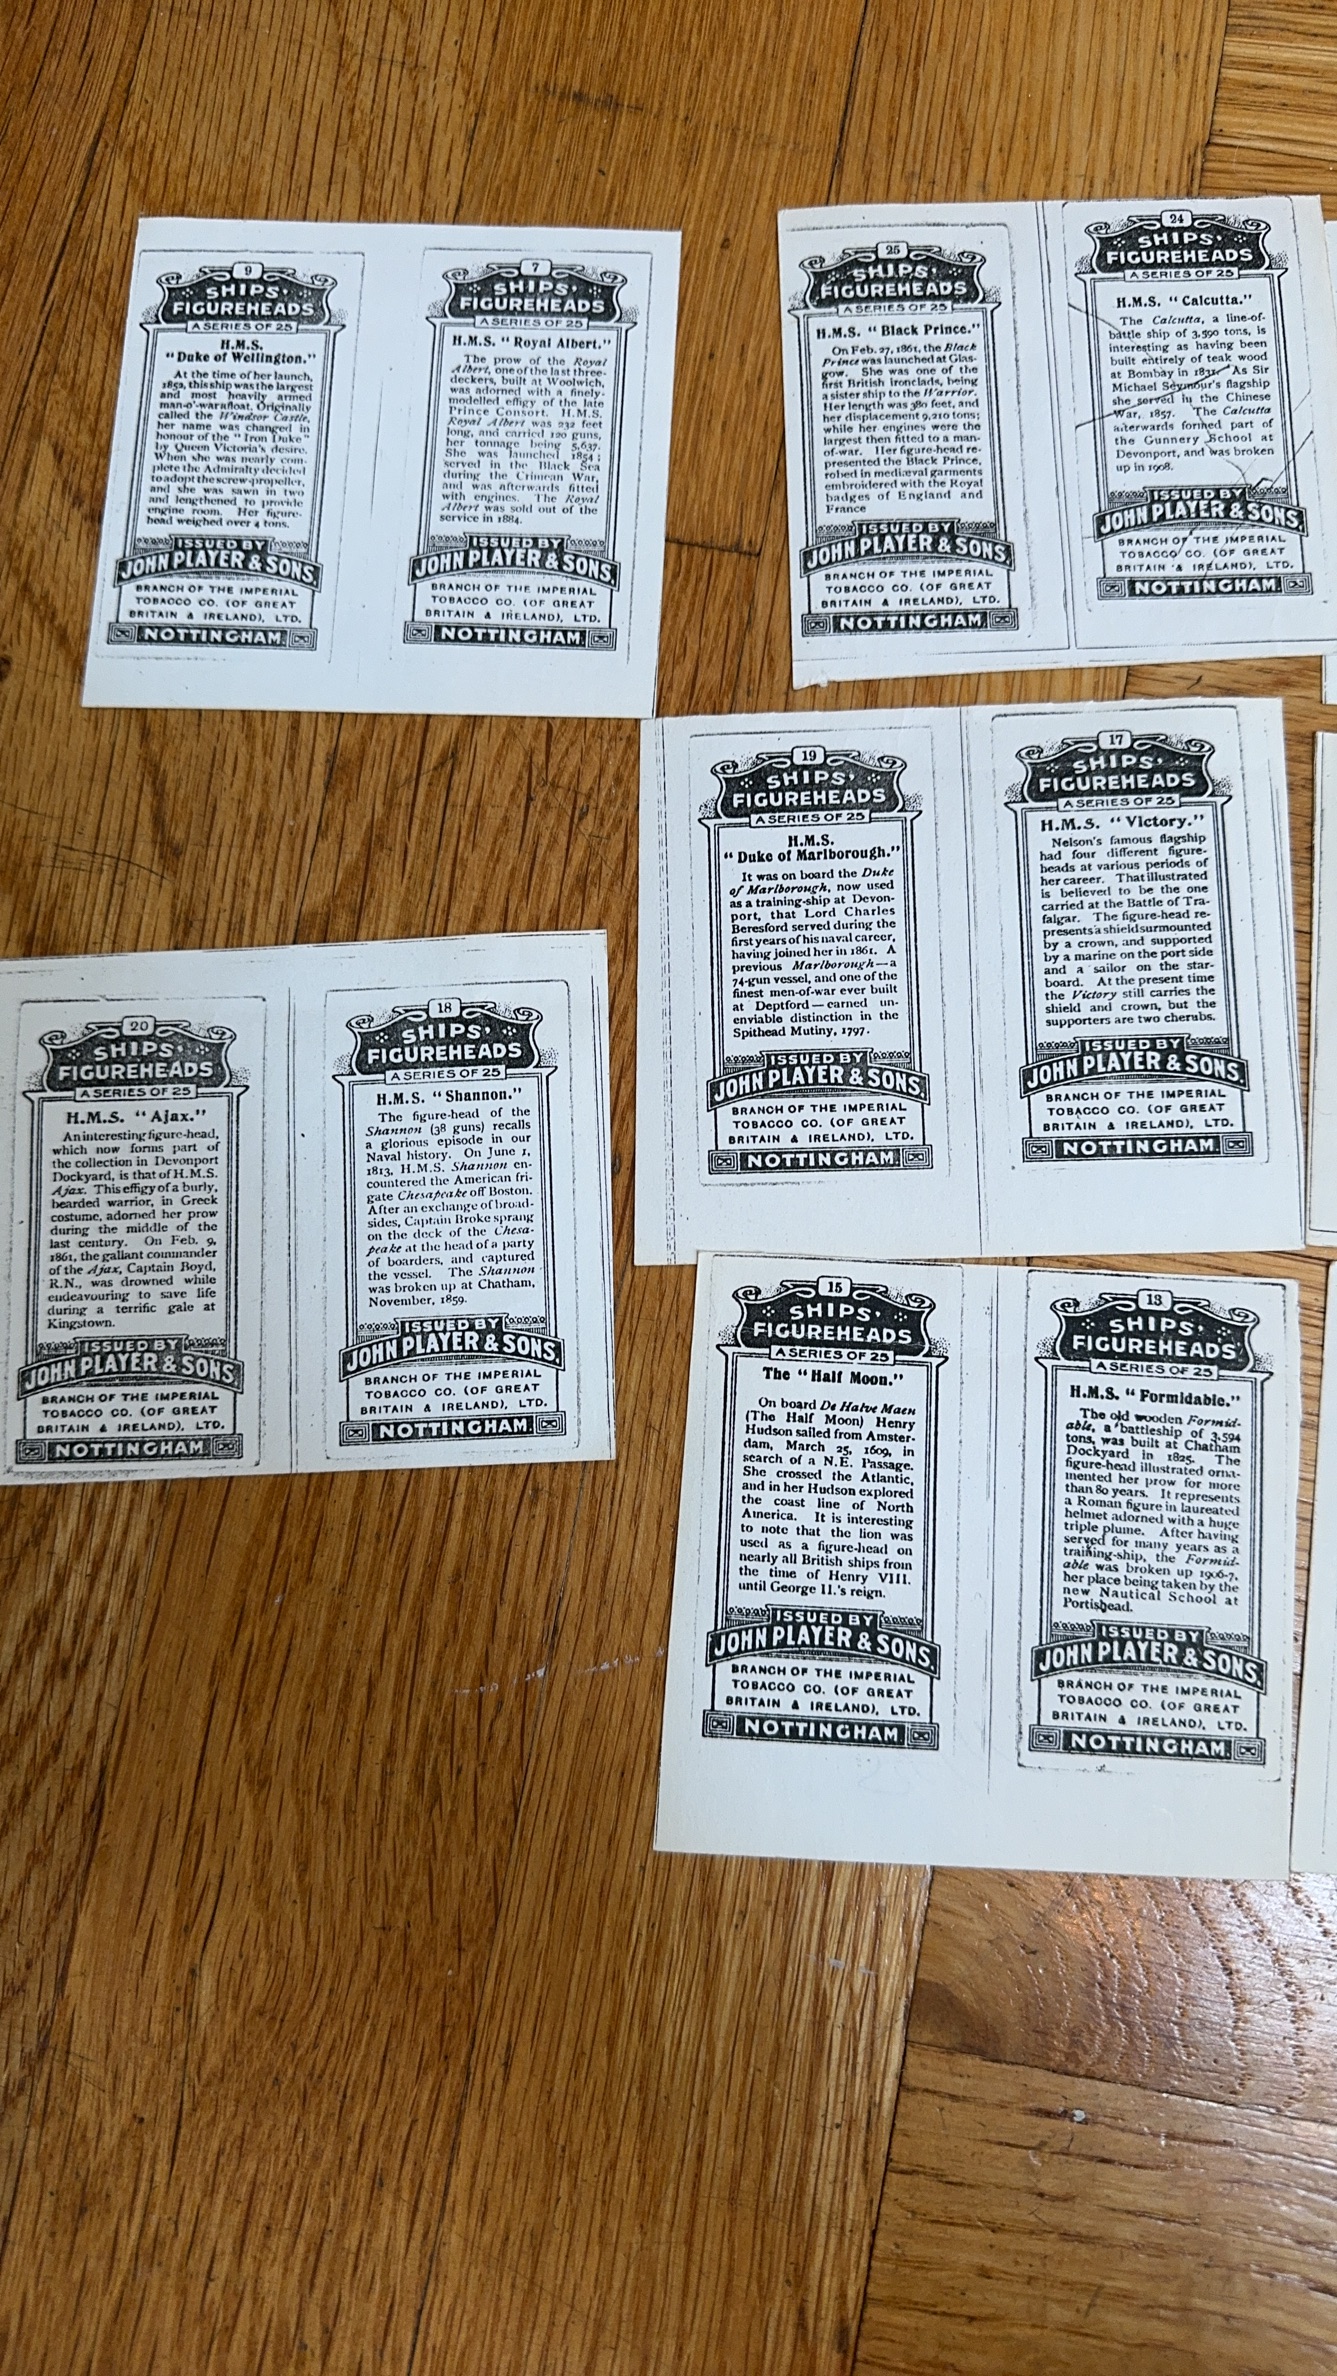 9
SHIPS'
FIGUREHEADS
A SERIES OF 25
H.M.S.
"Duke of Wellington."
At the time of her launch,
1852, this ship was the largest
and most heavily armed
man-o'-war afloat. Originally
called the Windsor Castle,
her name was changed in
honour of the "Iron Duke"
by Queen Victoria's desire.
When she was nearly com-
plete the Admiralty decided
to adopt the screw-propeller,
and she was sawn in two
and lengthened to provide
engine room. Her figure-
head weighed over 4 tons.
ISSUED BY
JOHN PLAYER & SONS.
BRANCH OF THE IMPERIAL
TOBACCO CO. (OF GREAT
BRITAIN & IRELAND), LTD.
NOTTINGHAM.
7
SHIPS'
FIGUREHEADS
A SERIES OF 25
H.M.S. "Royal Albert."
The prow of the Royal
Albert, one of the last three-
deckers, built at Woolwich,
was adorned with a finely-
modelled effigy of the late
Prince Consort. H.M.S.
Royal Albert was 232 feet
long, and carried 120 guns,
her tonnage being 5,637.
She was launched 1854;
served in the Black Sea
during the Crimean War,
and was afterwards fitted
with engines. The Royal
Albert was sold out of the
service in 1884.
ISSUED BY
JOHN PLAYER & SONS.
BRANCH OF THE IMPERIAL
TOBACCO CO. (OF GREAT
BRITAIN & IRELAND), LTD.
NOTTINGHAM.
25
SHIPS'
FIGUREHEADS
A SERIES OF 25
H.M.S. "Black Prince."
On Feb. 27, 1861, the Black
Prince was launched at Glas-
gow. She was one of the
first British ironclads, being
a sister ship to the Warrior.
Her length was 380 feet, and
her displacement 9,210 tons;
while her engines were the
largest then fitted to a man-
of-war. Her figure-head re-
presented the Black Prince,
robed in mediæval garments
embroidered with the Royal
badges of England and
France
ISSUED BY
JOHN PLAYER & SONS.
BRANCH OF THE IMPERIAL
TOBACCO CO. (OF GREAT
BRITAIN & IRELAND), LTD.
NOTTINGHAM.
24
SHIPS'
FIGUREHEADS
A SERIES OF 25
H.M.S. "Calcutta."
The Calcutta, a line-of-
battle ship of 3,590 tons, is
interesting as having been
built entirely of teak wood
at Bombay in 1831. As Sir
Michael Seymour's flagship
she served in the Chinese
War, 1857. The Calcutta
afterwards formed part of
the Gunnery School at
Devonport, and was broken
up in 1908.
ISSUED BY
JOHN PLAYER & SONS.
BRANCH OF THE IMPERIAL
TOBACCO CO. (OF GREAT
BRITAIN & IRELAND), LTD.
NOTTINGHAM.
19
SHIPS'
FIGUREHEADS
A SERIES OF 25
H.M.S.
"Duke of Marlborough."
It was on board the Duke
of Marlborough, now used
as a training-ship at Devon-
port, that Lord Charles
Beresford served during the
first years of his naval career,
having joined her in 1861. A
previous Marlborough—a
74-gun vessel, and one of the
finest men-of-war ever built
at Deptford—earned un-
enviable distinction in the
Spithead Mutiny, 1797.
ISSUED BY
JOHN PLAYER & SONS.
BRANCH OF THE IMPERIAL
TOBACCO CO. (OF GREAT
BRITAIN & IRELAND), LTD.
NOTTINGHAM.
17
SHIPS'
FIGUREHEADS
A SERIES OF 25
H.M.S. "Victory."
Nelson's famous flagship
had four different figure-
heads at various periods of
her career. That illustrated
is believed to be the one
carried at the Battle of Tra-
falgar. The figure-head re-
presents a shield surmounted
by a crown, and supported
by a marine on the port side
and a sailor on the star-
board. At the present time
the Victory still carries the
shield and crown, but the
supporters are two cherubs.
ISSUED BY
JOHN PLAYER & SONS.
BRANCH OF THE IMPERIAL
TOBACCO CO. (OF GREAT
BRITAIN & IRELAND), LTD.
NOTTINGHAM.
20
SHIPS'
FIGUREHEADS
A SERIES OF 25
H.M.S. "Ajax."
An interesting figure-head,
which now forms part of
the collection in Devonport
Dockyard, is that of H.M.S.
Ajax. This effigy of a burly,
bearded warrior, in Greek
costume, adorned her prow
during the middle of the
last century. On Feb. 9,
1861, the gallant commander
of the Ajax, Captain Boyd,
R.N., was drowned while
endeavouring to save life
during a terrific gale at
Kingstown.
ISSUED BY
JOHN PLAYER & SONS.
BRANCH OF THE IMPERIAL
TOBACCO CO. (OF GREAT
BRITAIN & IRELAND), LTD.
NOTTINGHAM
18
SHIPS'
FIGUREHEADS
A SERIES OF 25
H.M.S. "Shannon."
The figure-head of the
Shannon (38 guns) recalls
a glorious episode in our
Naval history. On June 1,
1813, H.M.S. Shannon en-
countered the American fri-
gate Chesapeake off Boston.
After an exchange of broad-
sides, Captain Broke sprang
on the deck of the Chesa-
peake at the head of a party
of boarders, and captured
the vessel. The Shannon
was broken up at Chatham,
November, 1859.
ISSUED BY
JOHN PLAYER & SONS.
BRANCH OF THE IMPERIAL
TOBACCO CO. (OF GREAT
BRITAIN & IRELAND), LTD.
NOTTINGHAM.
15
SHIPS'
FIGUREHEADS
A SERIES OF 25
The "Half Moon."
On board De Halve Maen
(The Half Moon) Henry
Hudson sailed from Amster-
dam, March 25, 1609, in
search of a N.E. Passage.
She crossed the Atlantic,
and in her Hudson explored
the coast line of North
America. It is interesting
to note that the lion was
used as a figure-head on
nearly all British ships from
the time of Henry VIII.
until George II.'s reign.
ISSUED BY
JOHN PLAYER & SONS.
BRANCH OF THE IMPERIAL
TOBACCO CO. (OF GREAT
BRITAIN & IRELAND), LTD.
NOTTINGHAM.
13
SHIPS'
FIGUREHEADS
A SERIES OF 25
H.M.S. "Formidable."
The old wooden Formid-
able, a battleship of 3,594
tons, was built at Chatham
Dockyard in 1825. The
figure-head illustrated orna-
mented her prow for more
than 80 years. It represents
a Roman figure in laureated
helmet adorned with a huge
triple plume. After having
served for many years as a
training-ship, the Formid-
able was broken up 1906-7,
her place being taken by the
new Nautical School at
Portishead.
ISSUED BY
JOHN PLAYER & SONS.
BRANCH OF THE IMPERIAL
TOBACCO CO. (OF GREAT
BRITAIN & IRELAND), LTD.
NOTTINGHAM.